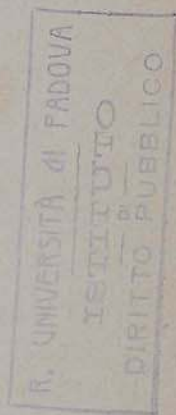 R. UNIVERSITÀ di PADOVA
ISTITUTO
DI
DIRITTO PUBBLICO